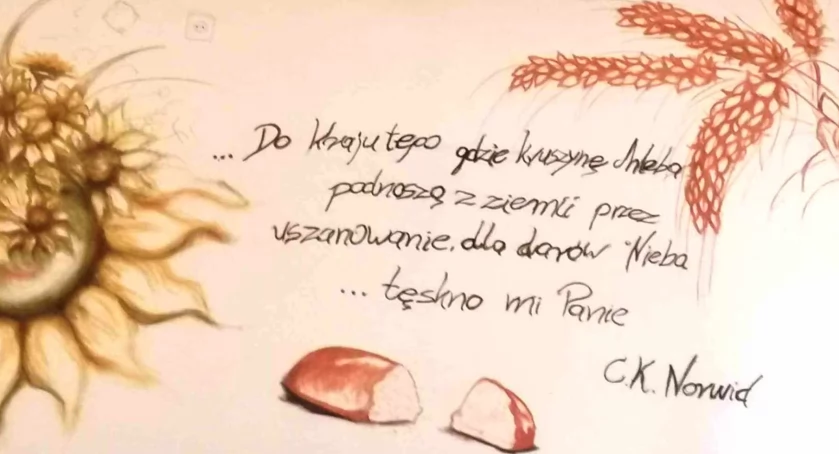 ... Do kraju tego gdzie kruszynę chleba
podnoszą z ziemi przez
uszanowanie, dla darów Nieba
... tęskno mi Panie
C.K. Norwid